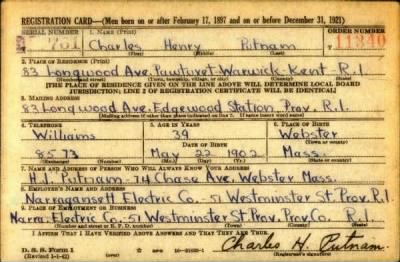 REGISTRATION CARD—(Men born on or after February 17, 1897 and on or before December 31, 1921)
SERIAL NUMBER 1. NAME (Print) ORDER NUMBER
Charles Henry Putnam 11340
(First) (Middle) (Last)
2. PLACE OF RESIDENCE (Print)
83 Longwood Ave. Pawtuxet-Warwick-Kent R.I.
(Number and street) (Town, township, village, or city) (County) (State)
[THE PLACE OF RESIDENCE GIVEN ON THE LINE ABOVE WILL DETERMINE LOCAL BOARD
JURISDICTION; LINE 2 OF REGISTRATION CERTIFICATE WILL BE IDENTICAL]
3. MAILING ADDRESS
83 Longwood Ave. Edgewood Station, Prov. R.I.
[Mailing address if other than place indicated on line 2. If same insert word same]
4. TELEPHONE 5. AGE IN YEARS 6. PLACE OF BIRTH
Williams 39 Webster
DATE OF BIRTH (Town or county)
8573 May 22 1902 Mass.
(Exchange) (Number) (Mo.) (Day) (Yr.) (State or country)
7. NAME AND ADDRESS OF PERSON WHO WILL ALWAYS KNOW YOUR ADDRESS
H. J. Putnam - 74 Chase Ave, Webster Mass.
8. EMPLOYER'S NAME AND ADDRESS
Narragansett Electric Co. - 51 Westminster St. Prov. R.I.
9. PLACE OF EMPLOYMENT OR BUSINESS
Narra. Electric Co. - 51 Westminster St. Prov. Prov. Co. R.I.
(Number and street or R. F. D. number) (Town) (County) (State)
I AFFIRM THAT I HAVE VERIFIED ABOVE ANSWERS AND THAT THEY ARE TRUE.
D. S. S. Form 1 Charles H. Putnam.
(Revised 1-1-42) (Registrant's signature)